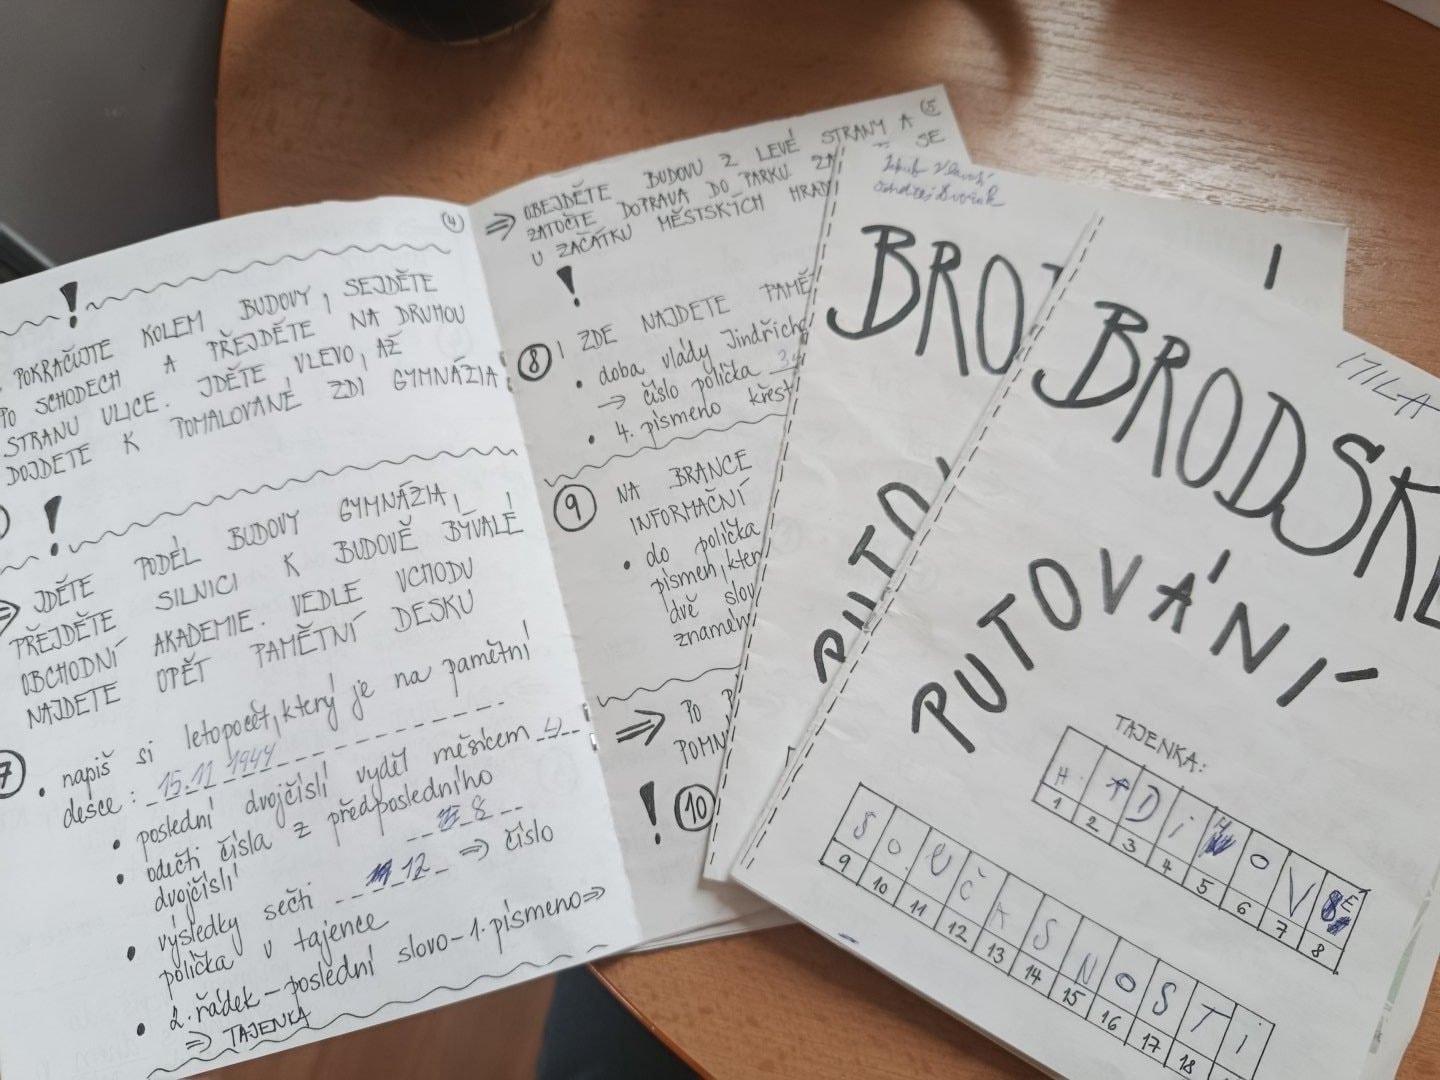 4
!
POKRAČUJTE KOLEM BUDOVY, SEJDĚTE
PO SCHODECH A PŘEJDĚTE NA DRUHOU
STRANU ULICE. JDĚTE VLEVO, AŽ
DOJDETE K POMALOVANÉ ZDI GYMNÁZIA
!
⇒ JDĚTE PODÉL BUDOVY GYMNÁZIA,
PŘEJDĚTE SILNICI K BUDOVĚ BÝVALÉ
OBCHODNÍ AKADEMIE. VEDLE VCHODU
NAJDETE OPĚT PAMĚTNÍ DESKU
7
• napiš si letopočet, který je na pamětní
desce: 15.11 1944
• poslední dvojčíslí vyděl měsícem 4
• odečti čísla z předposledního
dvojčíslí 8
• výsledky sečti 12 ⇒ číslo
políčka v tajence
• 2. řádek – poslední slovo – 1. písmeno ⇒
⇒ TAJENKA
5
⇒ OBEJDĚTE BUDOVU Z LEVÉ STRANY A
ZATOČTE DOPRAVA DO PARKU ZA SE
U ZAČÁTKU MĚSTSKÝCH HRAD
!
8 ZDE NAJDETE PAMĚ
• doba vlády Jindřich
→ číslo políčka 3
• 4. písmeno křest
9 NA BRANCE
INFORMAČNÍ
• do políčka
písmen, kter
dvě slov
znamén
⇒ PO
POMN
! 10
Ondřej Dvořák
BRO
PUTO
MILA
BRODSKÉ
PUTOVÁNÍ
TAJENKA:
H A D I H O V É
1 2 3 4 5 6 7 8
S O U Č A S N O S T I
9 10 11 12 13 14 15 16 17 18